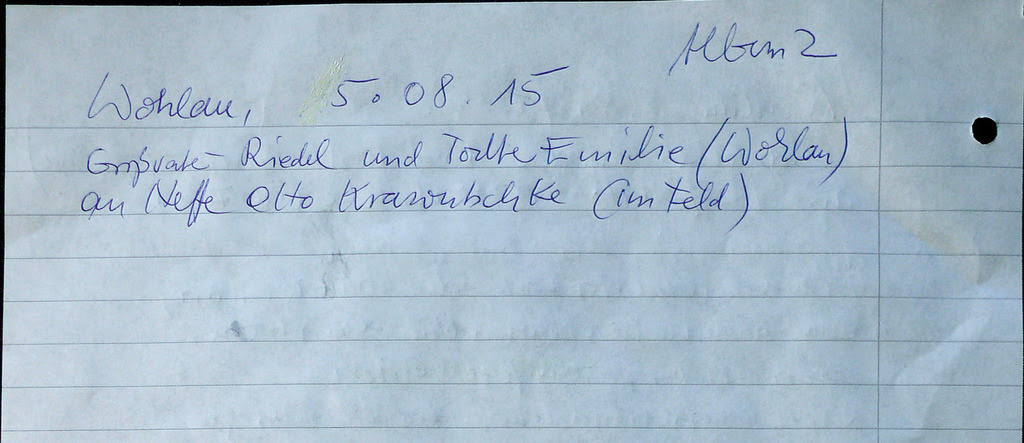 Album 2
Wohlau, 5. 08. 15
Großvater Riedel und Tochter Emilie (Wohlau)
an Neffe Otto (im Feld)